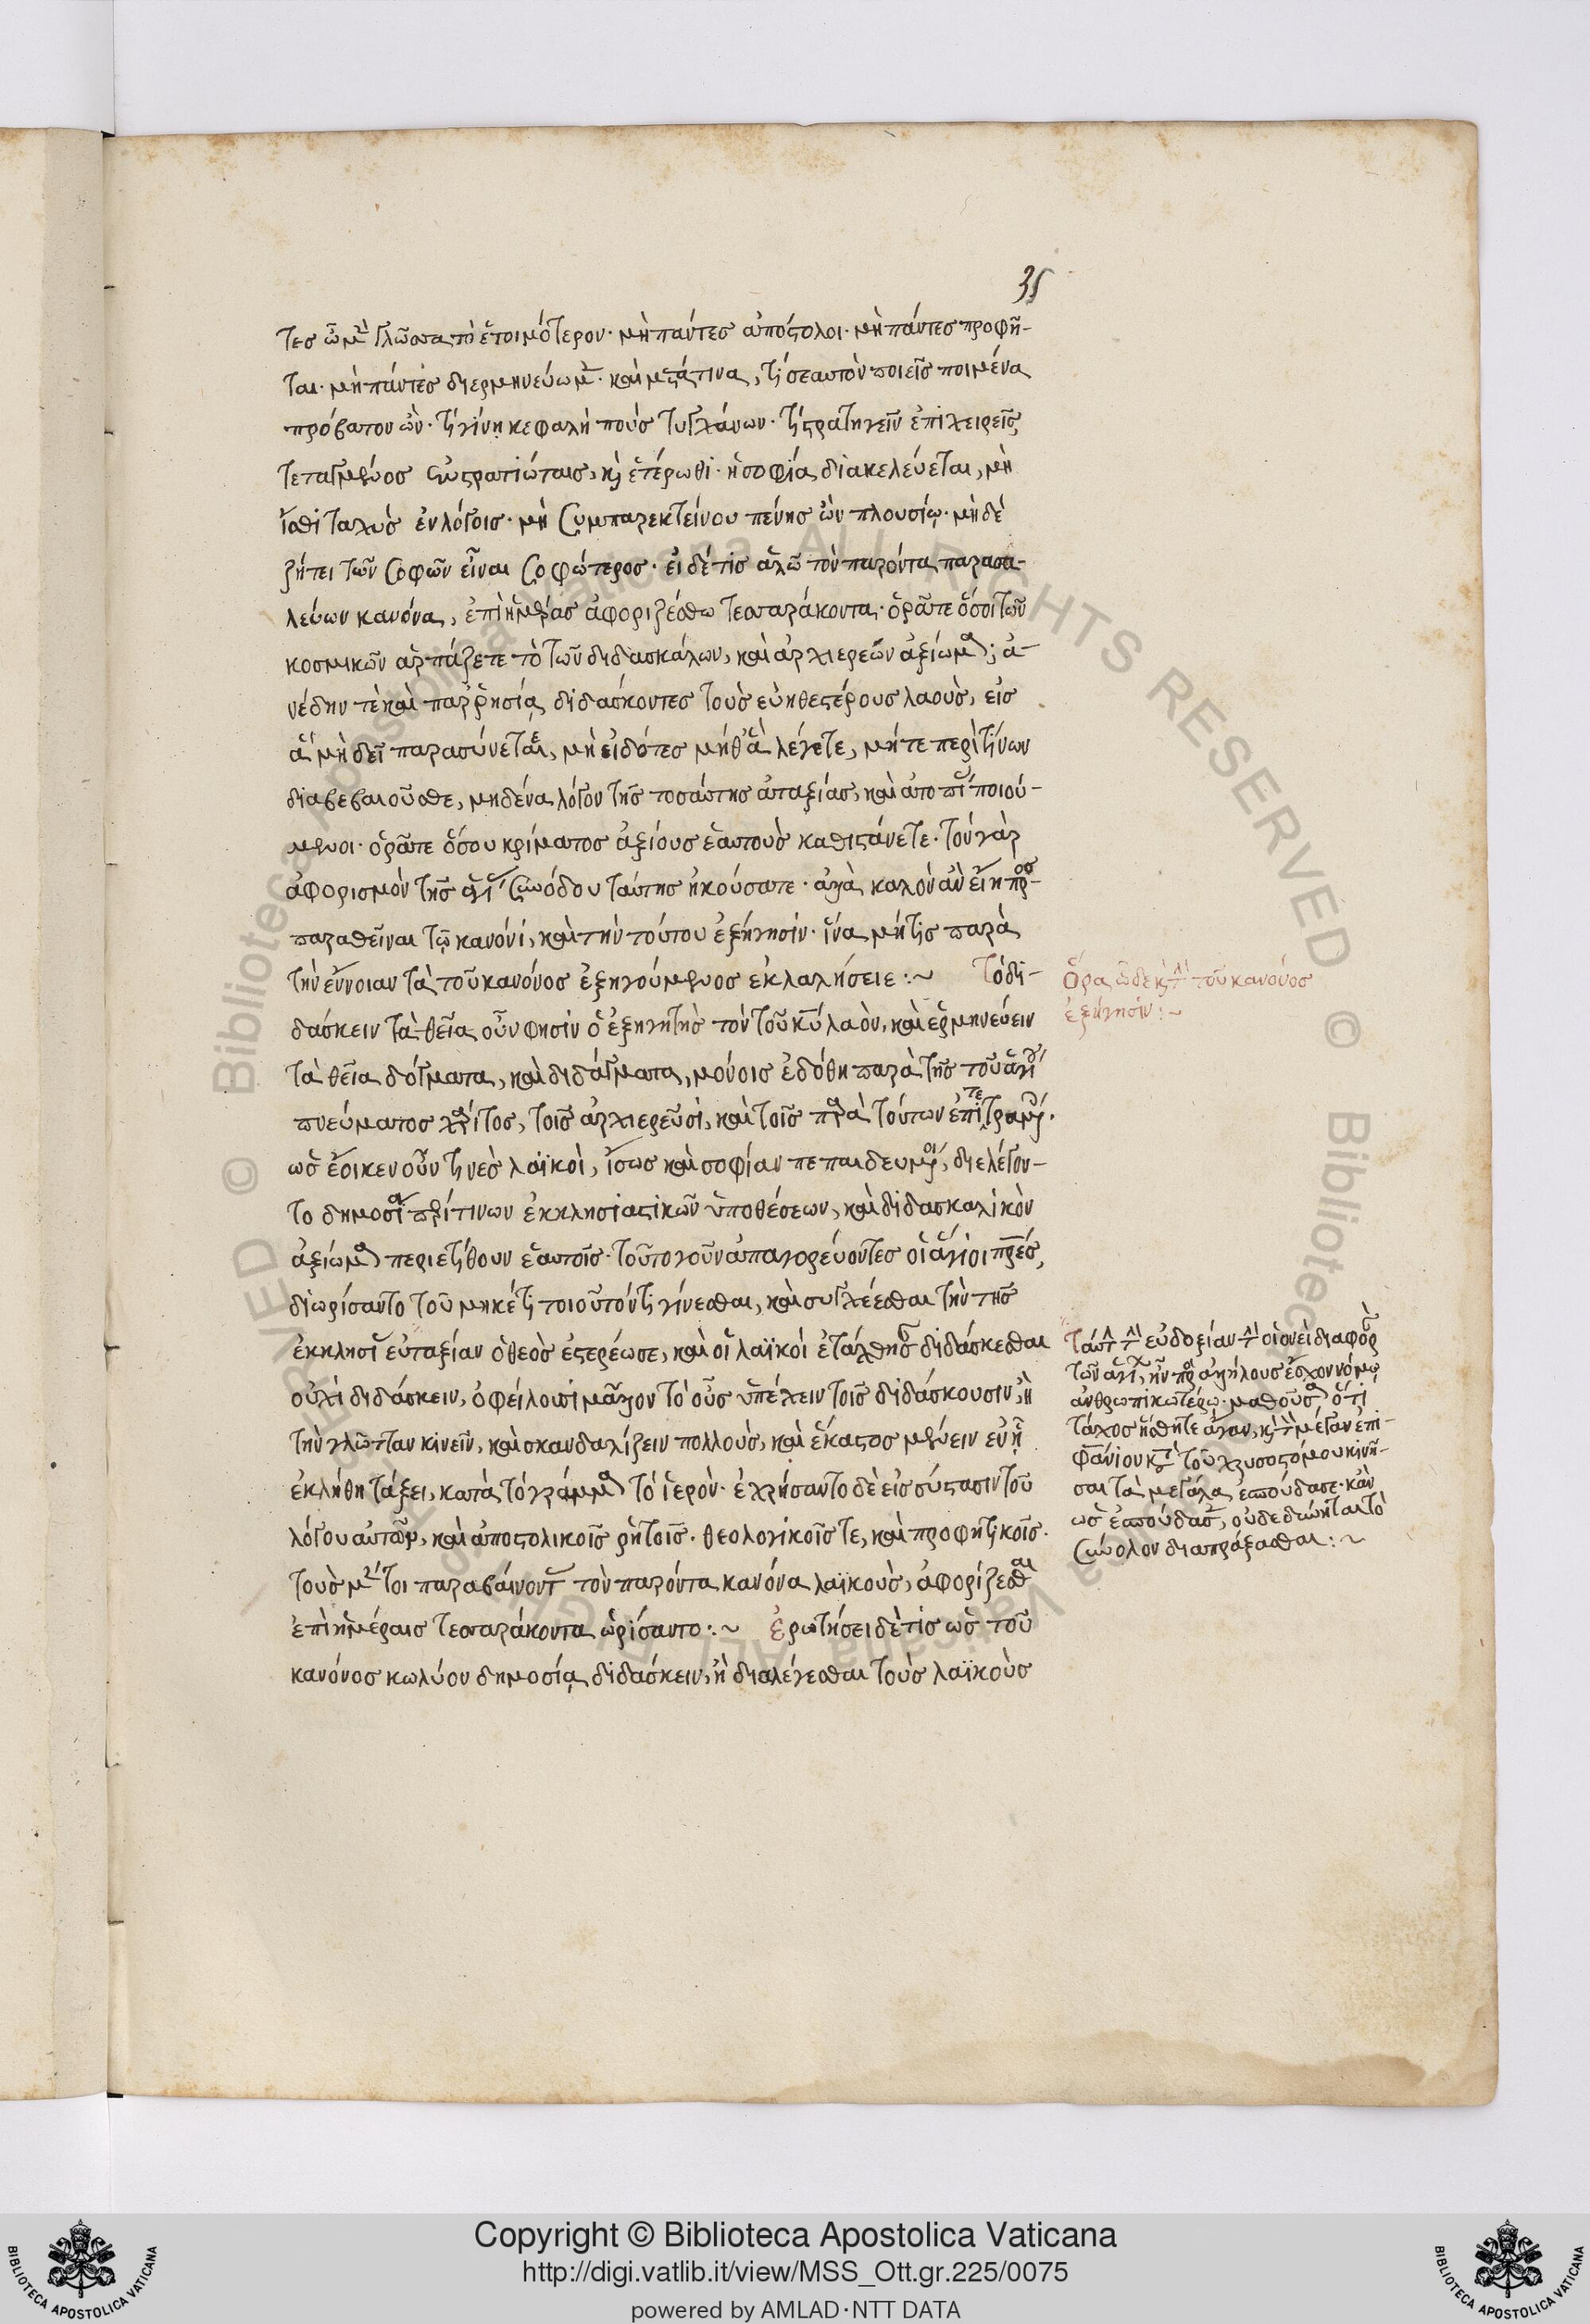 35
τες ὦμεν γλῶσσα τὸ ἑτοιμότερον· μὴ πάντες ἀπόστολοι· μὴ πάντες προφῆ-
ται· μὴ πάντες διερμηνεύωμεν· καὶ μετά τινα, τί σεαυτὸν ποιεῖς ποιμένα
πρόβατον ὤν· τί γίνῃ κεφαλὴ ποὺς τυγχάνων· τί στρατηγεῖν ἐπιχειρεῖς
τεταγμένος ἐν στρατιώταις, καὶ ἑτέρωθι· ἡ σοφία διακελεύεται, μὴ
ἴσθι ταχὺς ἐν λόγοις· μὴ συμπαρεκτείνου πένης ὢν πλουσίῳ· μὴ δὲ
ζήτει τῶν σοφῶν εἶναι σοφώτερος· εἰ δέ τις ἁλῶ τὸν παρόντα παρασα-
λεύων κανόνα, ἐπὶ ἡμέρας ἀφοριζέσθω τεσσαράκοντα· ὁρᾶτε ὅσοι τῶν
κοσμικῶν ἁρπάζετε τὸ τῶν διδασκάλων, καὶ ἀρχιερέων ἀξίωμα; ἀ-
νέδην τὲ καὶ παρρησίᾳ διδάσκοντες τοὺς εὐηθεστέρους λαοὺς, εἰς
ἃ μὴ δεῖ παρασύνεται, μὴ εἰδότες μήθ' ἃ λέγετε, μήτε περὶ τίνων
διαβεβαιοῦσθε, μηδένα λόγον τῆς τοσαύτης ἀταξίας, καὶ ἀτοπί ποιού-
μενοι· ὁρᾶτε ὅσου κρίματος ἀξίους ἑαυτοὺς καθιστάνετε· τοῦ γὰρ
ἀφορισμὸν τῆς ἁγί συνόδου ταύτης ἠκούσατε· ἀλλὰ καλὸν ἂν εἴη προσ-
παραθεῖναι τῷ κανόνι, καὶ τὴν τούτου ἐξήγησιν· ἵνα μή τις παρὰ
τὴν ἔννοιαν τὰ τοῦ κανόνος ἐξηγούμενος ἐκλαλήσειε :~ Τὸ δι-
δάσκειν τὰ θεῖα οὖν φησὶν ὁ ἐξηγητὴς τὸν τοῦ κυ λαὸν, καὶ ἑρμηνεύειν
τὰ θεῖα δόγματα, καὶ διδάγματα, μόνοις ἐδόθη παρὰ τῆς τοῦ ἁγί
πνεύματος χάριτος, τοῖς ἀρχιερεῦσι, καὶ τοῖς παρὰ τούτων ἐπιτετραμμ.
ὡς ἔοικεν οὖν τινὲς λαϊκοὶ, ἴσως καὶ σοφίαν πεπαιδευμένοι, διελέγον-
το δημοσί περί τινων ἐκκλησιαστικῶν ὑποθέσεων, καὶ διδασκαλικὸν
ἀξίωμα περιετίθουν ἑαυτοῖς· τοῦτο γοῦν ἀπαγορεύοντες οἱ ἅγιοι πρες,
διωρίσαντο τοῦ μηκέτι τοιοῦτόν τι γίνεσθαι, καὶ συγχέεσθαι τὴν τῆς
ἐκκλησί εὐταξίαν ὁ θεὸς ἐστερέωσε, καὶ οἱ λαϊκοὶ ἐτάχθησ διδάσκεσθαι
οὐχὶ διδάσκειν, ὀφείλουσι μᾶλλον τὸ οὖς ὑπέχειν τοῖς διδάσκουσιν, ἢ
τὴν γλῶτταν κινεῖν, καὶ σκανδαλίζειν πολλοὺς, καὶ ἕκαστος μένειν ἐν ᾗ
ἐκλήθη τάξει, κατὰ τὸ γράμμα τὸ ἱερὸν· ἐχρήσαντο δὲ εἰς σύστασιν τοῦ
λόγου αὐτῶν, καὶ ἀποστολικοῖς ῥητοῖς· θεολογικοῖς τε, καὶ προφητικοῖς·
τοὺς μέντοι παραβαίνοντ τὸν παρόντα κανόνα λαϊκοὺς, ἀφορίζεσθαι
ἐπὶ ἡμέραις τεσσαράκοντα ὡρίσαντο :~ ἐρωτήσει δὲ τὶς ὡς τοῦ
κανόνος κωλύον δημοσίᾳ διδάσκειν, ἢ διαλέγεσθαι τοὺς λαϊκοὺς
Ὅρα ὧδε καὶ τὴν τοῦ κανόνος
ἐξήγησιν :~
Ταύτην τὴν εὐδοξίαν τὴν οἱονεὶ διαφορ
τῶν ἁγί, ἣν πρὸς ἀλλήλους ἔσχον νόμῳ
ἀνθρωπικωτέρῳ· μαθοῦσα ὅτι
τάχος ἥσθητε ἄγαν, καὶ τὸν μέγαν ἐπι-
φάνιον κατὰ τοῦ χρυσοστόμου κινῆ-
σαι τὰ μεγάλα ἐσπούδασε· κἂν
ὡς ἐσπούδασ, οὐ δεδύνηται τὸ
σύνολον διαπράξασθαι :~
Copyright © Biblioteca Apostolica Vaticana
http://digi.vatlib.it/view/MSS_Ott.gr.225/0075
powered by AMLAD·NTT DATA
BIBLIOTECA APOSTOLICA VATICANA
BIBLIOTECA APOSTOLICA VATICANA